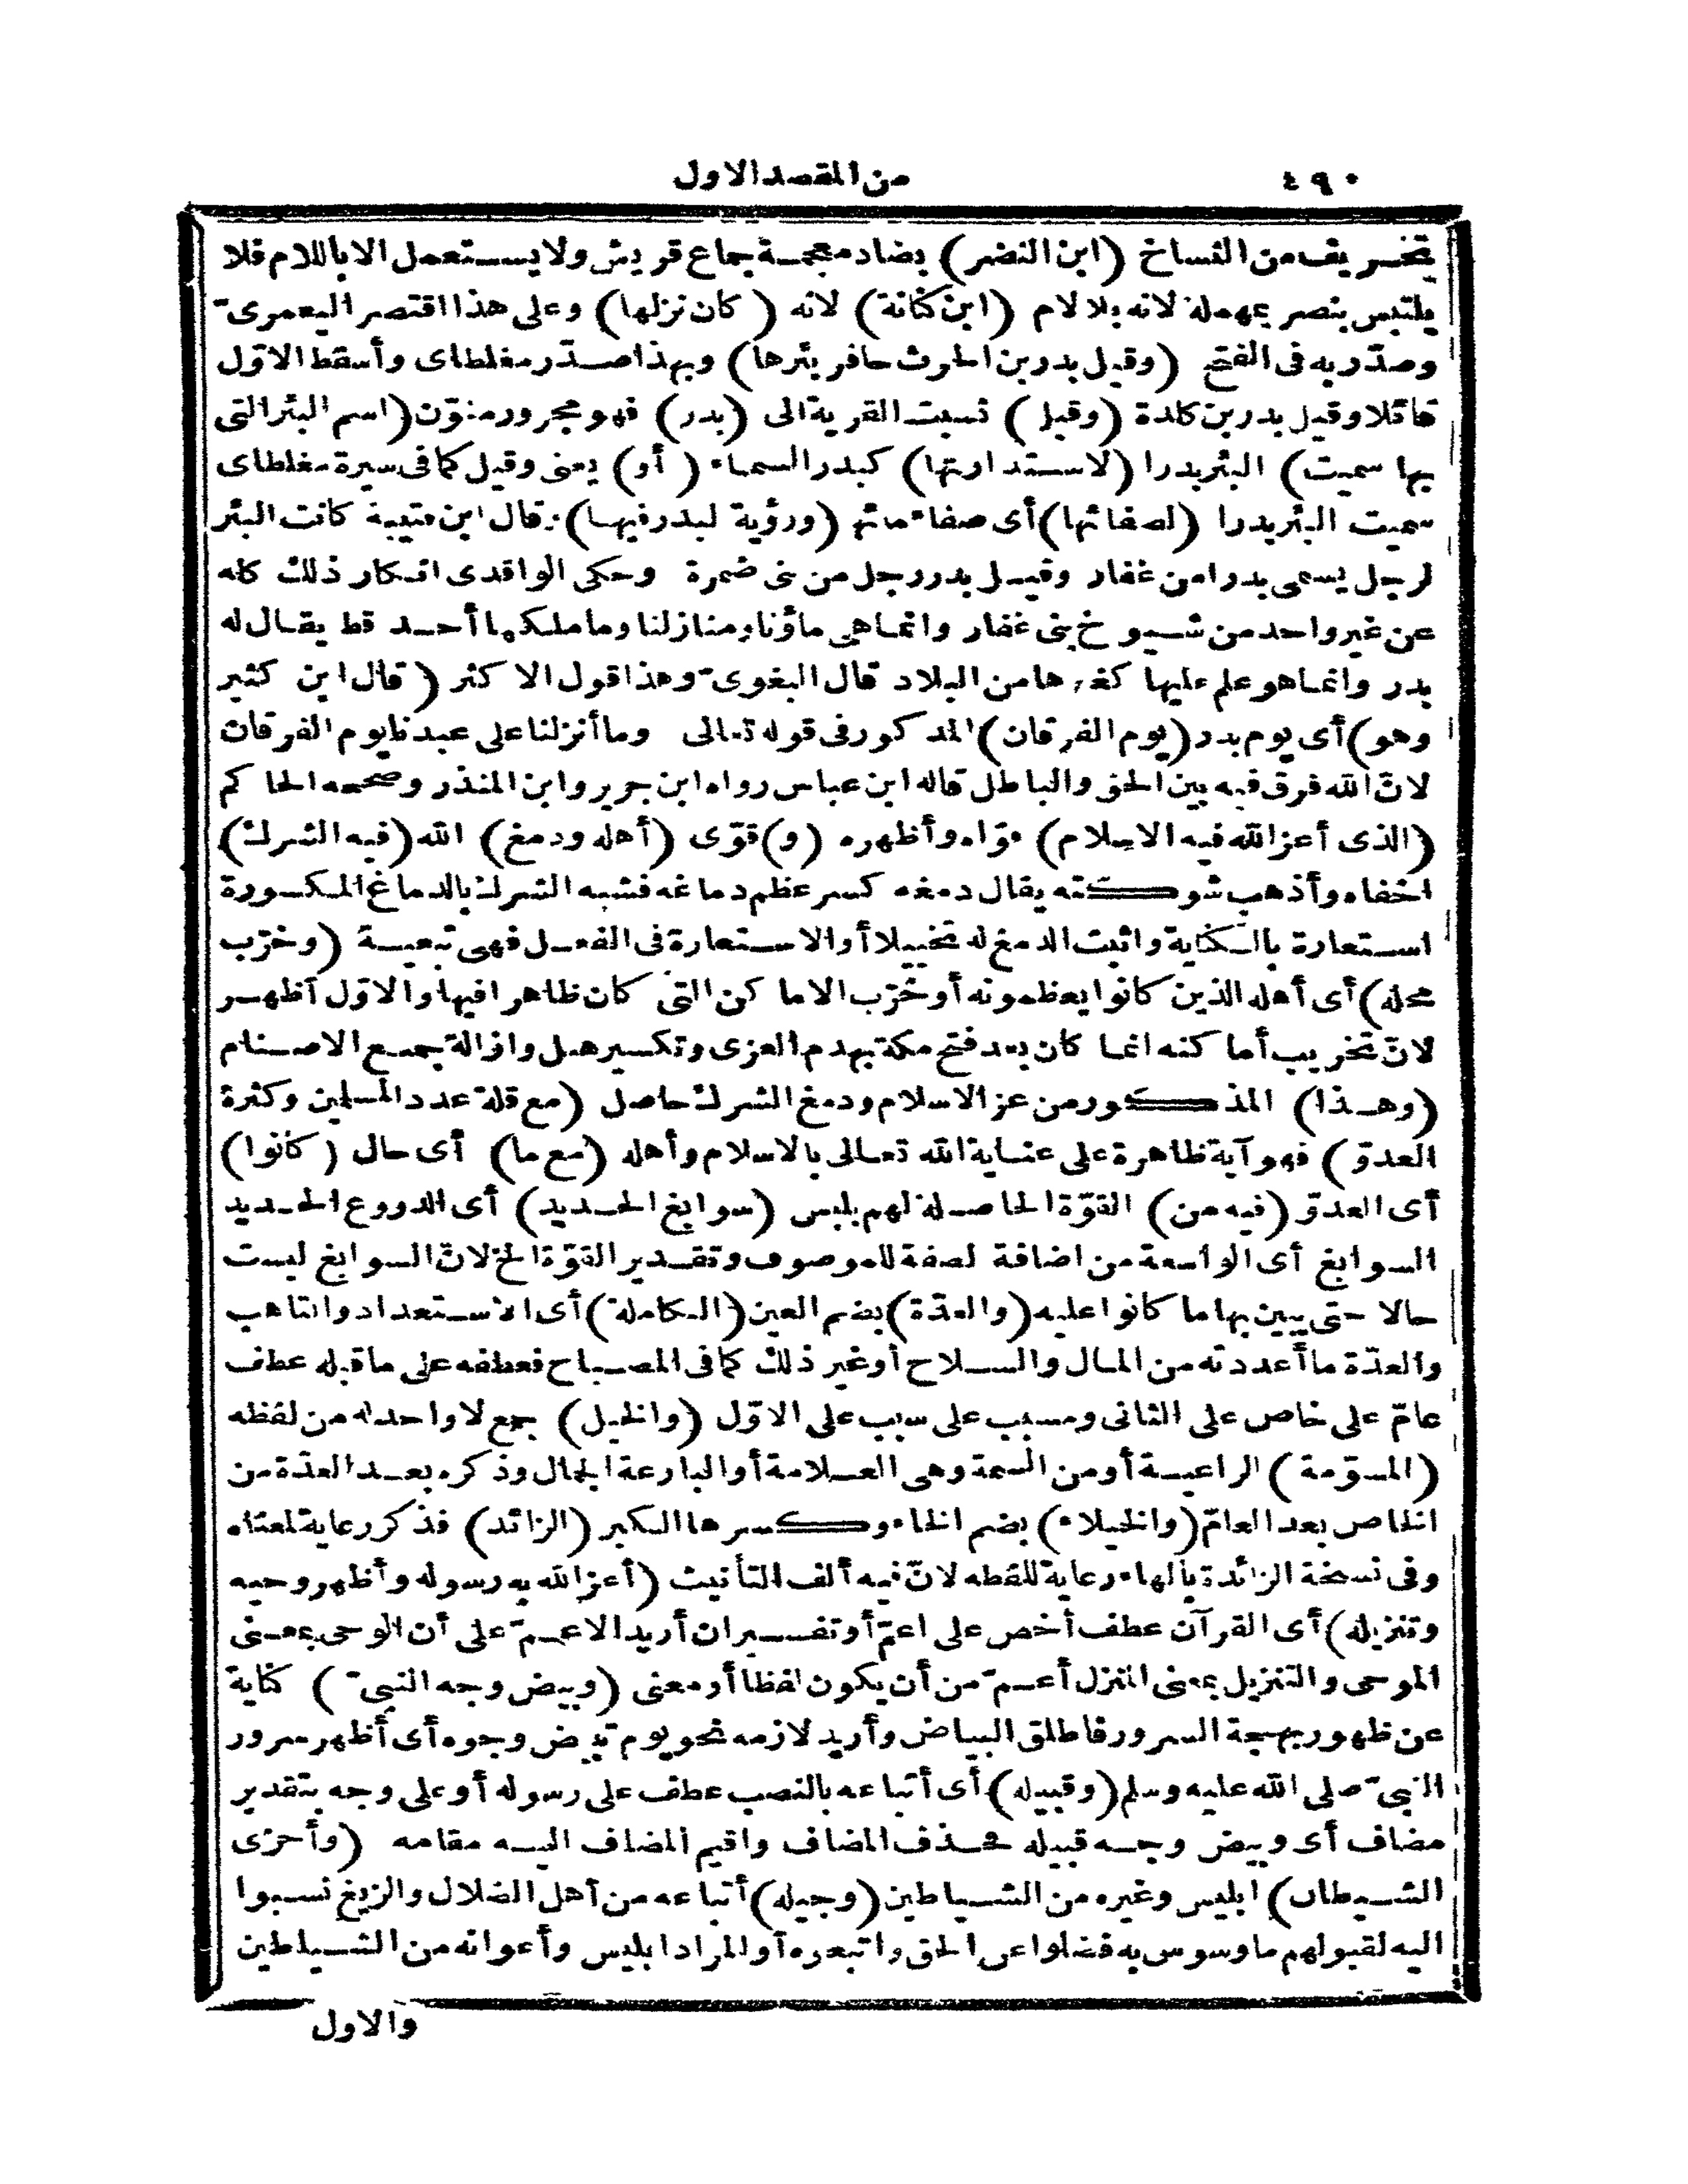 ٤٩٠
من المقصد الاول
تحريف من النساخ (ابن النضر) بضاد معجمة جماع قريش ولا يستعمل الا باللام فلا
يلتبس بنصر بمهملة لانه بلا لام (ابن كنانة) لانه (كان نزلها) وعلى هذا اقتصر اليعمرىّ
وصدّر به فى الفتح (وقيل بدر بن الحرث حافر بئرها) وبهذا صدّر مغلطاى وأسقط الاوّل
قائلا وقيل بدر بن كلدة (وقيل) نسبت القرية الى (بدر) فهو مجرور منوّن (اسم البئر التى
بها سميت) البئر بدرا (لاستدارتها) كبدر السماء (أو) يعنى وقيل كما فى سيرة مغلطاى
سميت البئر بدرا (لصفائها) أى صفاء مائها (ورؤية البدر فيها) وقال ابن قتيبة كانت البئر
لرجل يسمى بدرا من غفار وقيل بدر رجل من بنى ضمرة وحكى الواقدى انكار ذلك كله
عن غير واحد من شيوخ بنى غفار وانما هى ماؤنا ومنازلنا وما ملكها أحد قط يقال له
بدر وانما هو علم عليها كغيرها من البلاد قال البغوىّ وهذا قول الاكثر (قال ابن كثير
وهو) أى يوم بدر (يوم الفرقان) المذكور فى قوله تعالى وما أنزلنا على عبدنا يوم الفرقان
لانّ الله فرق فيه بين الحق والباطل قاله ابن عباس رواه ابن جرير وابن المنذر وصححه الحاكم
(الذى أعز الله فيه الاسلام) قوّاه وأظهره (و) قوّى (أهله ودمغ) الله (فيه الشرك)
اخفاه وأذهب شوكته يقال دمغه كسر عظم دماغه فشبه الشرك بالدماغ المكسورة
استعارة بالكناية واثبت الدمغ له تخييلا أو الاستعارة فى الفعل فهى تبعية (وخرّب
محله) أى أهله الذين كانوا يعظمونه أو خرّب الاماكن التى كان ظاهرا فيها والاوّل أظهر
لانّ تخريب أماكنه انما كان بعد فتح مكة بهدم العزى وتكسير هبل وازالة جميع الاصنام
(وهذا) المذكور من عز الاسلام ودمغ الشرك حاصل (مع قلة عدد المسلمين وكثرة
العدوّ) فهو آية ظاهرة على عناية الله تعالى بالاسلام وأهله (مع ما) أى حال (كانوا)
أى العدوّ (فيه من) القوّة الحاصلة لهم بلبس (سوابغ الحديد) أى الدروع الحديد
السوابغ أى الواسعة من اضافة الصفة للموصوف وتقدير القوّة الخ لانّ السوابغ ليست
حالا حتى يبين بها ما كانوا عليه (والعدّة) بضم العين (الكاملة) أى الاستعداد والتاهب
والعدّة ما أعددته من المال والسلاح أو غير ذلك كما فى المصباح فعطفه على ما قبله عطف
عامّ على خاص على الثانى ومسبب على سبب على الاوّل (والخيل) جمع لا واحد له من لفظه
(المسوّمة) الراعية أو من السمة وهى العلامة أو البارعة الجمال وذكره بعد العدّة من
الخاص بعد العامّ (والخيلاء) بضم الخاء وكسرها الكبر (الزائد) فذكر رعاية لمعناه
وفى نسخة الزائدة بالهاء رعاية للفظه لانّ فيه ألف التأنيث (أعز الله به رسوله وأظهر وحيه
وتنزيله) أى القرآن عطف أخص على اعمّ أو تفسير ان أريد الاعمّ على أن الوحى بمعنى
الموحى والتنزيل بمعنى المنزل أعمّ من أن يكون لفظا أو معنى (وبيض وجه النبىّ) كناية
عن ظهور بهجة السرور فاطلق البياض وأريد لازمه نحو يوم تبيض وجوه أى أظهر سرور
النبىّ صلى الله عليه وسلم (وقبيله) أى أتباعه بالنصب عطف على رسوله أو على وجه بتقدير
مضاف أى وبيض وجه قبيله فحذف المضاف واقيم المضاف اليه مقامه (وأخزى
الشيطان) ابليس وغيره من الشياطين (وجيله) أتباعه من أهل الضلال والزيغ نسبوا
اليه لقبولهم ما وسوس به فضلوا عن الحق واتبعوه أو المراد ابليس وأعوانه من الشياطين
والاول